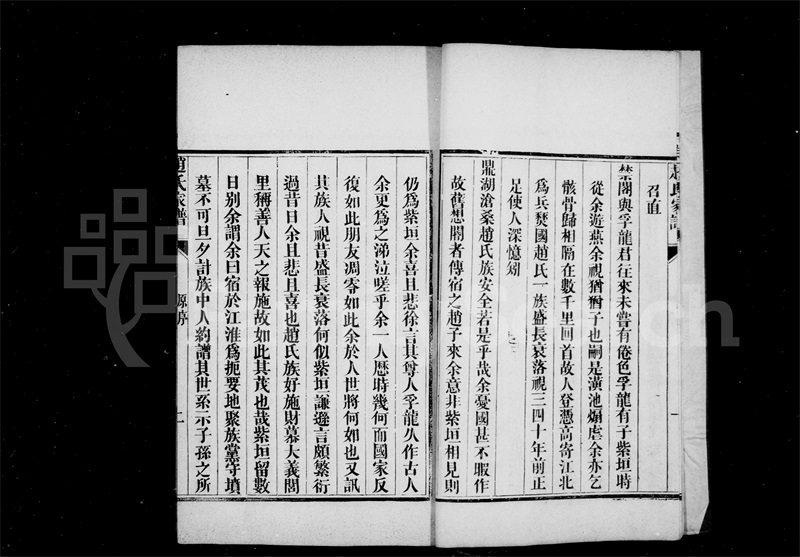 趙氏家譜
召直
禁闥與孚龍君往來未嘗有倦色孚龍有子紫垣時
從余遊燕余視猶猶子也嗣是潢池煽虐余亦乞
骸骨歸相隔在數千里回首故人登憑高寄江北
為兵燹國趙氏一族盛長衰落視三四十年前正
足使人深憶
鼎湖滄桑趙氏族安全若是乎哉余憂國甚不暇作
故舊想閽者傳宿之趙子來余意非紫垣相見則
仍為紫垣余喜且悲徐言其尊人孚龍久作古人
余更為之涕泣嗟乎余一人歷時幾何而國家反
復如此朋友凋零如此余於人世將何如也又訊
其族人視昔盛長衰落何似紫垣謙遜言頗繁衍
過昔日余且悲且喜也趙氏族好施財慕大義閭
里稱善人天之報施故如此其茂也哉紫垣留數
日別余謂余曰宿於江淮為扼要地聚族黨守墳
墓不可旦夕計族中人約譜其世系示子孫之所
趙氏家譜
源序
二